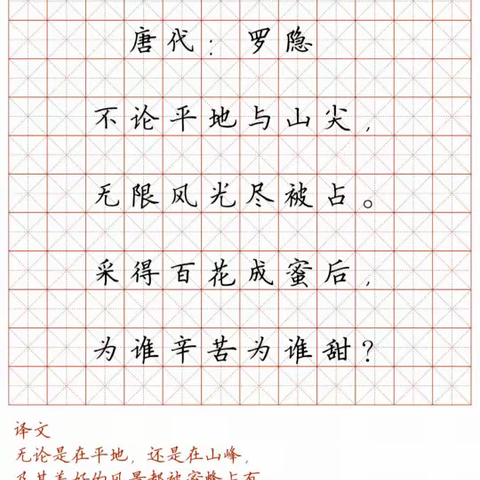 唐代：罗隐
不论平地与山尖，
无限风光尽被占。
采得百花成蜜后，
为谁辛苦为谁甜？
译文
无论是在平地，还是在山峰，